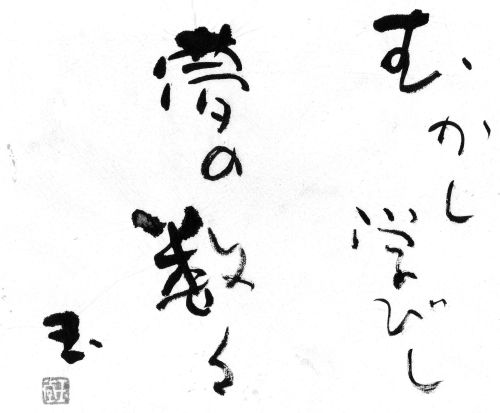 むかし学びし
夢の数々
玉